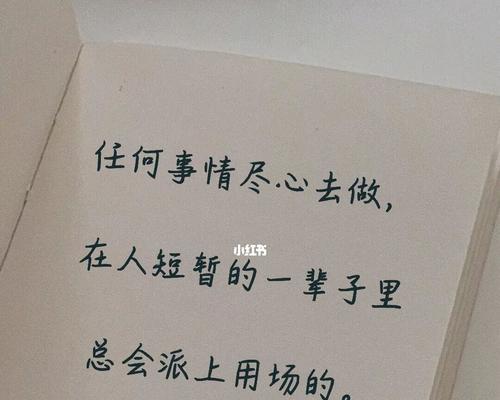 任何事情尽心去做,
小红书
在人短暂的一辈子里
总会派上用场的。